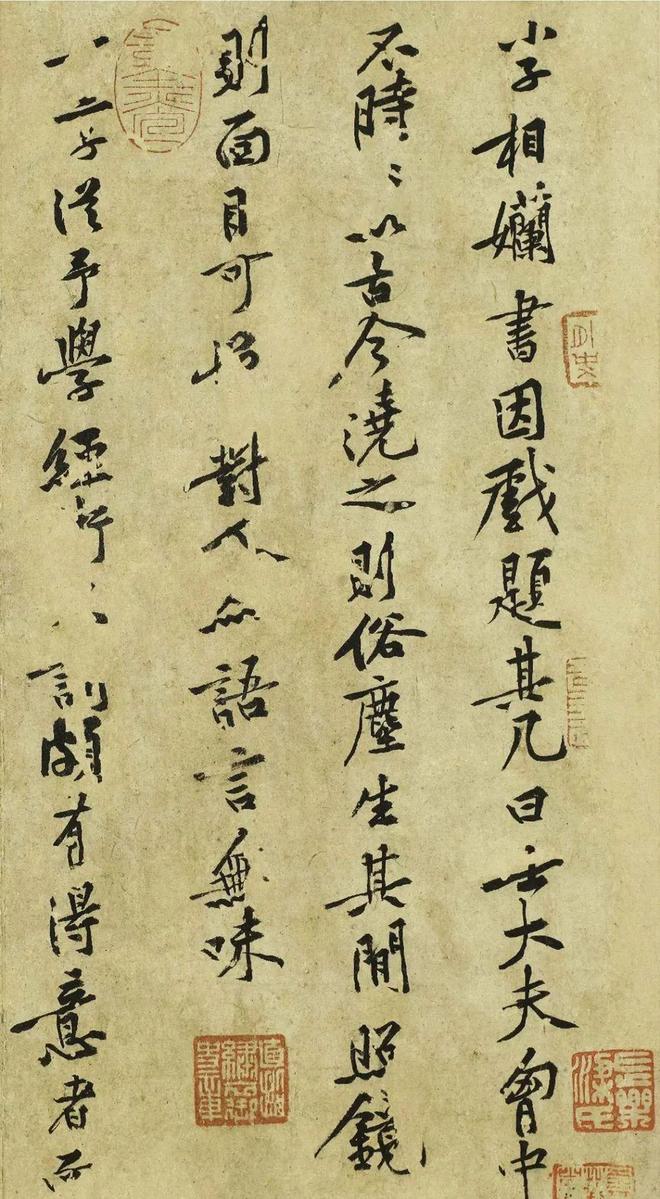 小子相嬾書因戲題其几曰士大夫胷中
不時〻以古今澆之則俗塵生其間照鏡
則面目可憎對人亦語言無味
一二子從予學經訓頗有得意者而